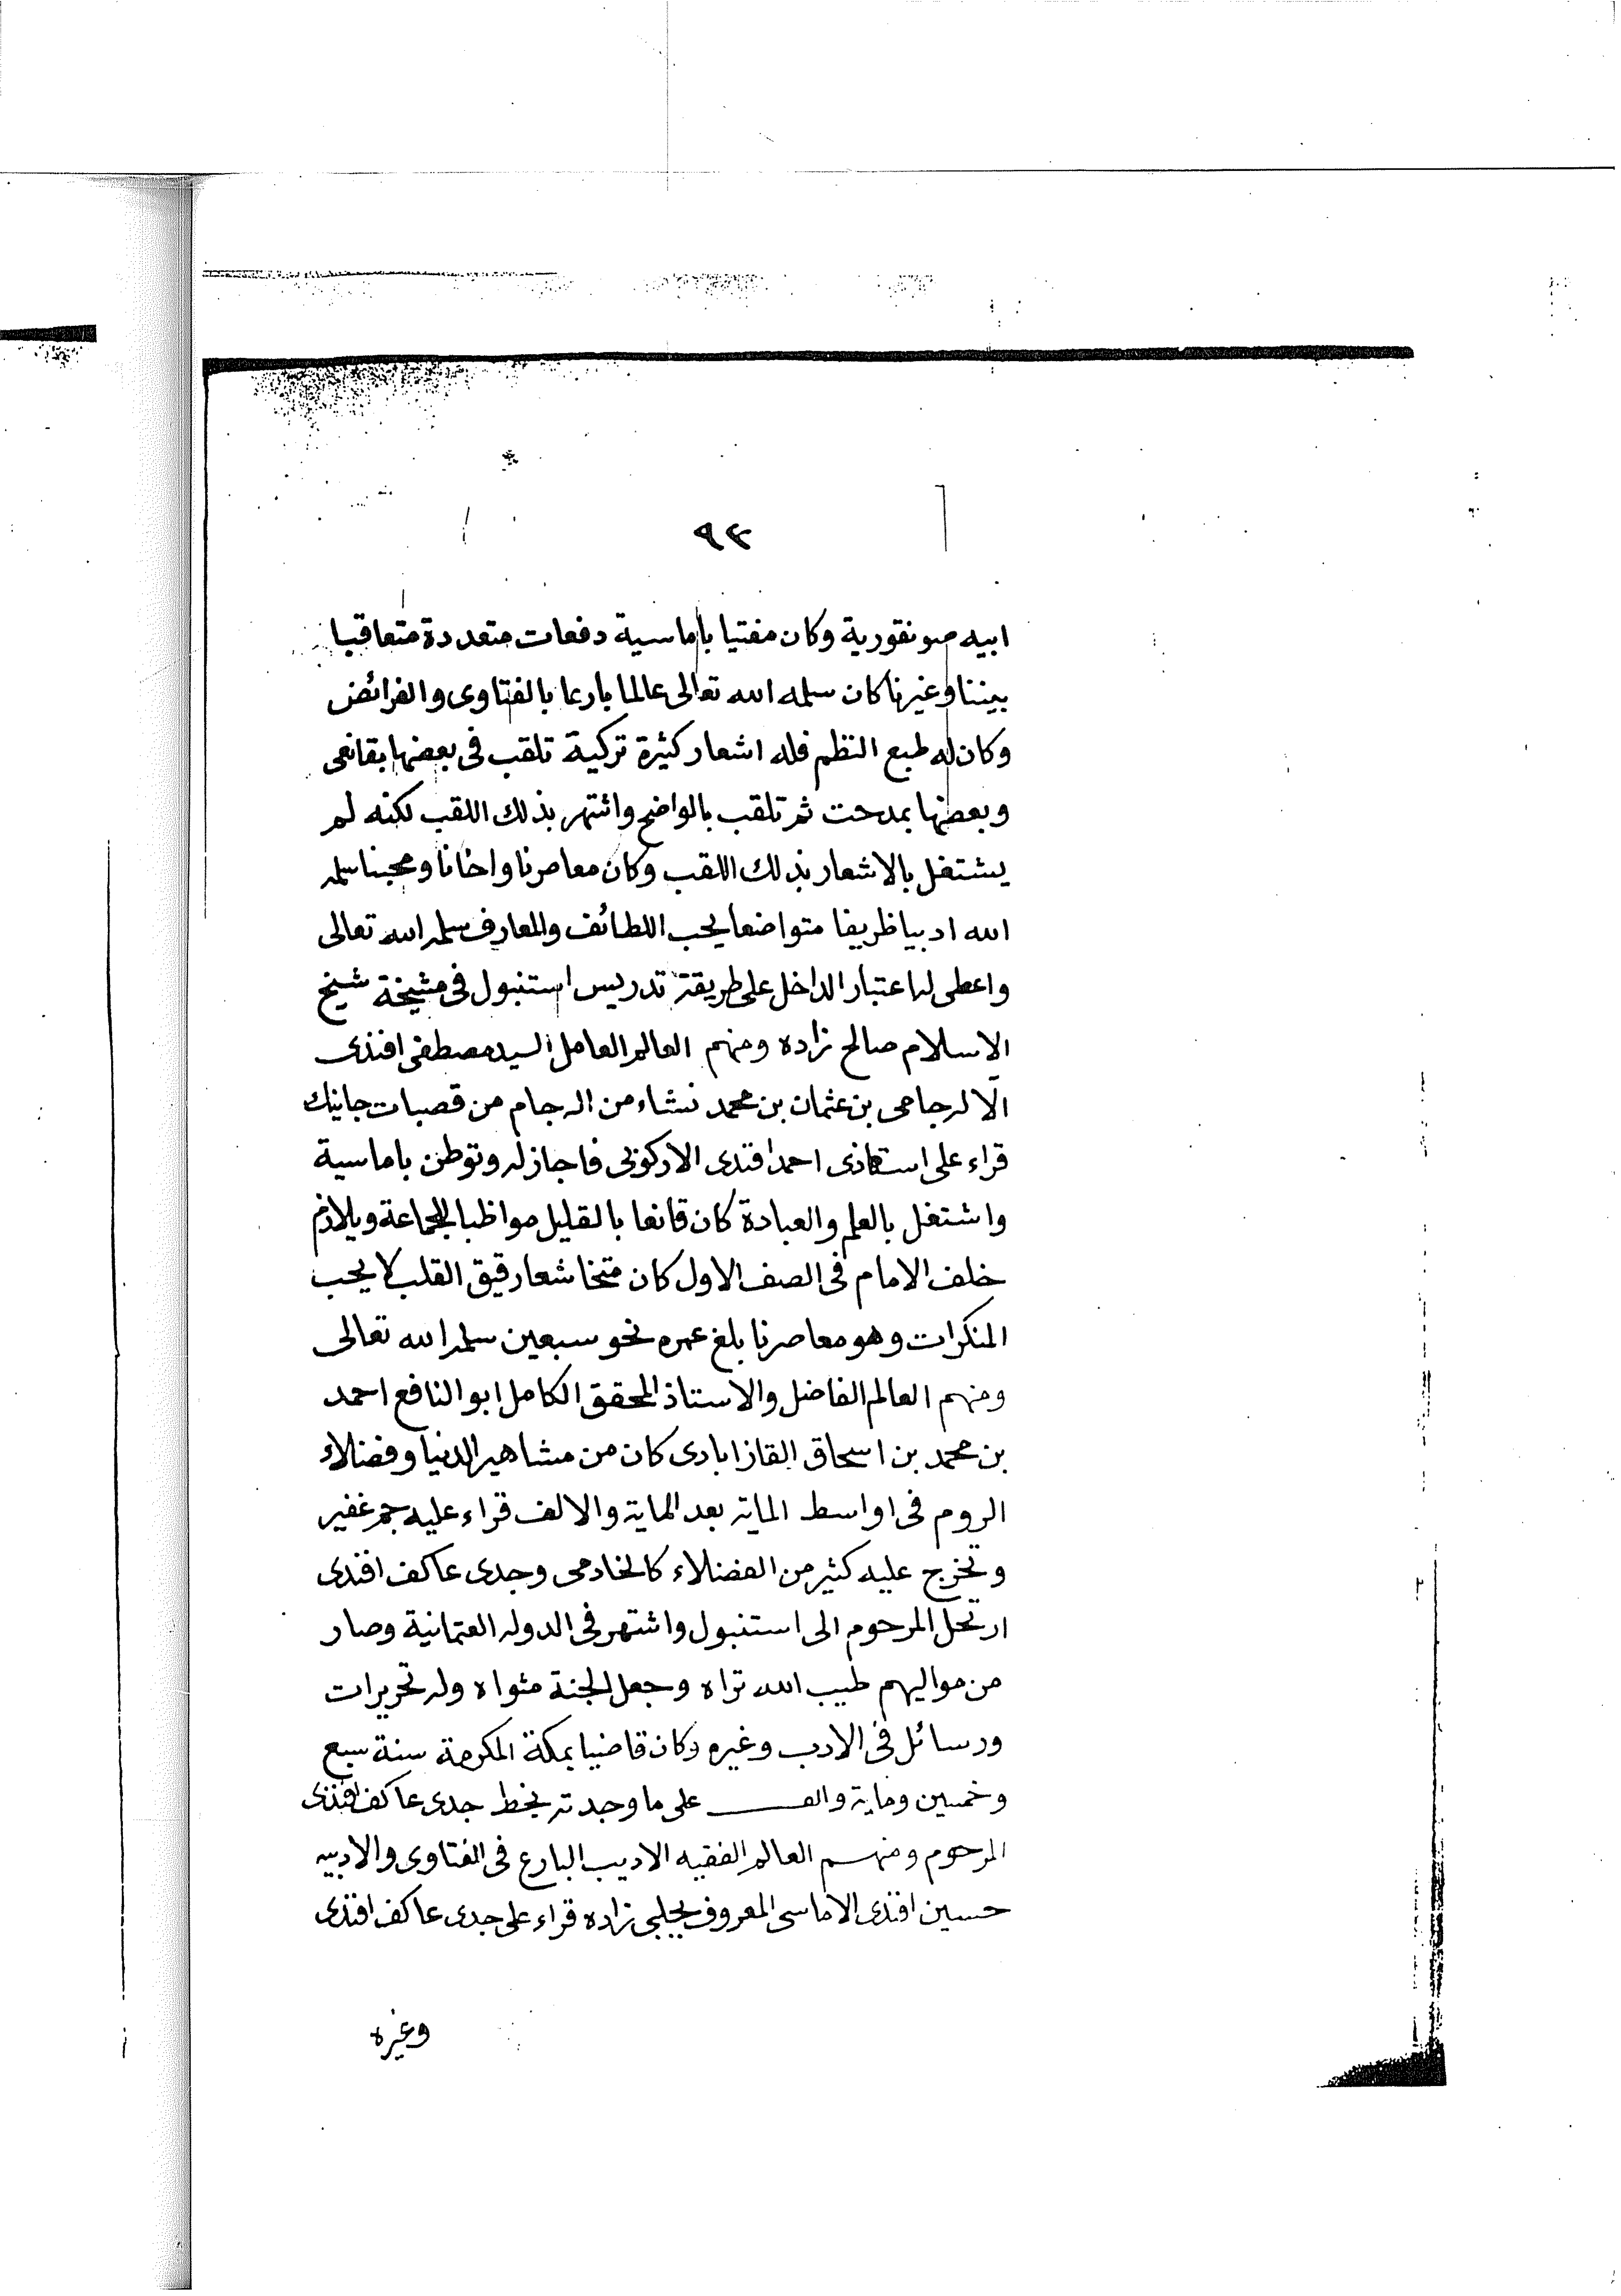 ٩٣
ابيه صونقورية وكان مفتيا باماسية دفعات متعددة متعاقبا
بيننا وغيرنا كان سلمه الله تعالى عالما بارعا بالفتاوى والفرائض
وكان له طبع النظم فله اشعار كثيرة تركية تلقب فى بعضها بقانعى
وبعضها بمدحت ثم تلقب بالواضح واشتهر بذلك اللقب لكنه لم
يشتغل بالاشعار بذلك اللقب وكان معاصرنا واخانا ومحبنا سلمه
الله اديبا ظريفا متواضعا يحب اللطائف والمعارف سلمه الله تعالى
واعطى له اعتبار الداخل على طريقة تدريس استنبول فى مشيخة شيخ
الاسلام صالح زاده ومنهم العالم العامل السيد مصطفى افندى
الالرجامى بن عثمان بن محمد نشاء من الرجام من قصبات جانيك
قراء على استاذى احمد افندى الادكوبى فاجاز له وتوطن باماسية
واشتغل بالعلم والعبادة كان قانعا بالقليل مواظبا للجماعة ويلازم
خلف الامام فى الصف الاول كان متخاشعا رقيق القلب لا يحب
المنكرات وهو معاصرنا بلغ عمره نحو سبعين سلمه الله تعالى
ومنهم العالم الفاضل والاستاذ المحقق الكامل ابو النافع احمد
بن محمد بن اسحاق القازابادى كان من مشاهير الدنيا وفضلاء
الروم فى اواسط الماية بعد الماية والالف قراء عليه جم غفير
وتخرج عليه كثير من الفضلاء كالخادمى وجدى عاكف افندى
ارتحل المرحوم الى استنبول واشتهر فى الدوله العثمانية وصار
من مواليهم طيب الله تراه وجعل الجنة مثواه وله تحريرات
ورسائل فى الادب وغيره وكان قاضيا بمكة المكرمة سنة سبع
وخمسين وماية والف على ما وجدته بخط جدى عاكف افندى
المرحوم ومنهم العالم الفقيه الاديب البارع فى الفتاوى والادبيه
حسين افندى الاماسى المعروف بجلبى زاده قراء على جدى عاكف افندى
وغيره